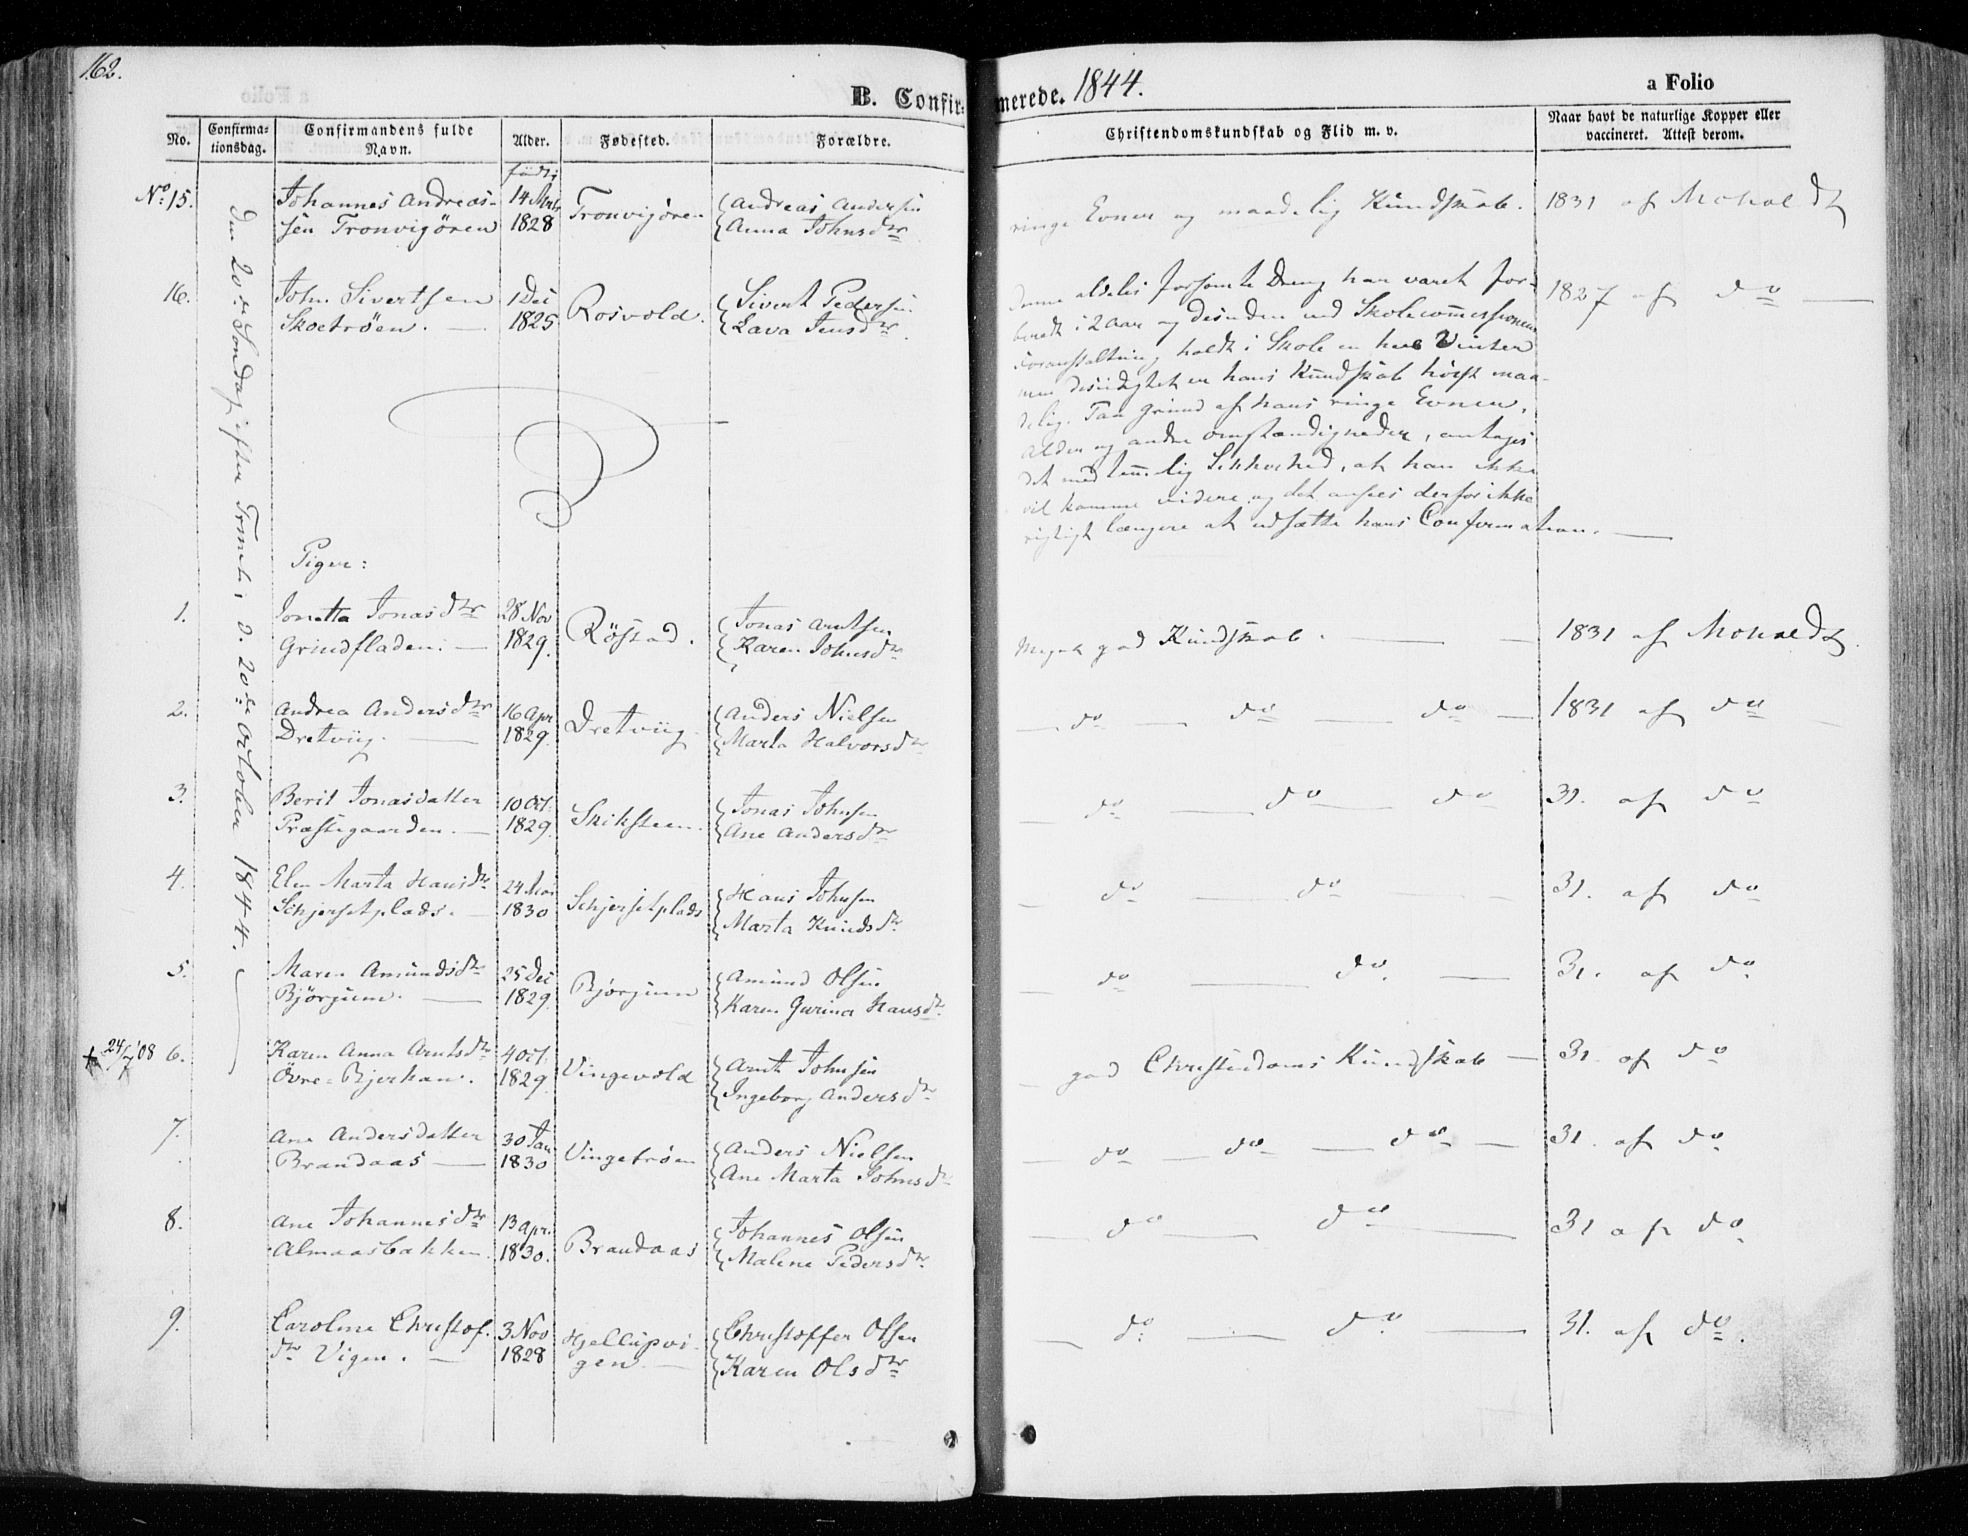 162.
B. Confirmerede. 1844.
a Folio
No.
Confirmationsdag.
Confirmandens fulde Navn.
Alder.
Fødested.
Forældre.
Christendomskundskab og Flid m. v.
Naar havt de naturlige Kopper eller vaccineret. Attest derom.
født
Den 20de Søndag efter Trinit: d. 20de October 1844.
No 15. Johannes Andreas- 14 Tronvigören Andreas Andersen ringe Evner og maadelig Kundskab. 1831 af
sen Tronvigören 1828 Anna Johnsdtr
16. John Sivertsen 1 Dec Rosvold. Sivert Pedersen Denne aldeles forsömte Dreng har været for- 1827 af do
Skoetröen. 1825 Lava Jensdtr beredt i 2 Aar og desuden ved Skolecommissionens
Foranstaltning holdt i Skole en heel Vinter
men desuagtet er hans Kundskab höist maa-
delig. Paa Grund af hans ringe Evner,
Alder og andre Omstændigheder, antages
det med temmelig Sikkerhed, at han ikke
vil komme videre og det ansees derfor ikke
rigtigt længere at udsætte hans Confirmation.
Piger:
1. Jonetta Jonasdtr 28 Nov Röstad. Jonas Arntsen Meget god Kundskab. 1831 af
Grindfladen. 1829. Karen Johnsdtr
2. Andrea Andersdtr 16 Apr Dretviig. Anders Nielsen do do do 1831 af do
Dretviig. 1829. Marta Halvorsdtr
3. Berit Jonasdatter 10 Oct. Skiksteen. Jonas Johnsen do do do 31. af do
Præstegaarden. 1829. Ane Andersdtr
4. Elen Marta Hansdtr 24 Schjersetplads Hans Johnsen do do 31. af do
Schjersetplads. 1830 Marta Knudsdtr
5. Maren Amundsdtr 25 Dec Björgum Amund Olsen do do. 31. af do
Björgum. 1829. Karen Gurina Hansdtr.
24/7 08 6. Karen Anna Arntsdtr 4 Oct. Vingevold Arnt Johnsen god Christendoms Kundskab 31. af do
Övre-Bjerkan. 1829. Ingeborg Andersdtr
7. Ane Andersdatter 30 Jan Vingetröen Anders Nielsen do do do 31. af do
Brandaas 1830 Ane Marta Johnsdtr
8. Ane Johannesdtr 13 Apr. Brandaas Johannes Olsen do do 31 af do
Almaasbakken. 1830. Malene Pedersdtr.
9. Caroline Christof. 3 Nov Hjellupvi- Christoffer Olsen do do 31. af do.
dtr Vigen. 1828 gen Karen Olsdtr